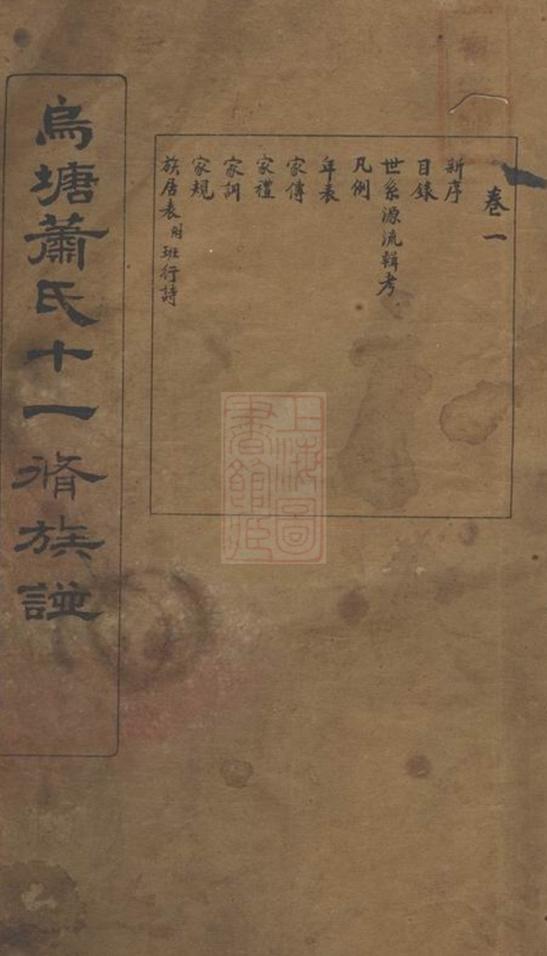 烏塘蕭氏十一脩族譜
卷一
新序
目錄
世系源流輯考
凡例
年表
家傳
家禮
家訓
家規
族居表附班行詩
上海圖
書館藏